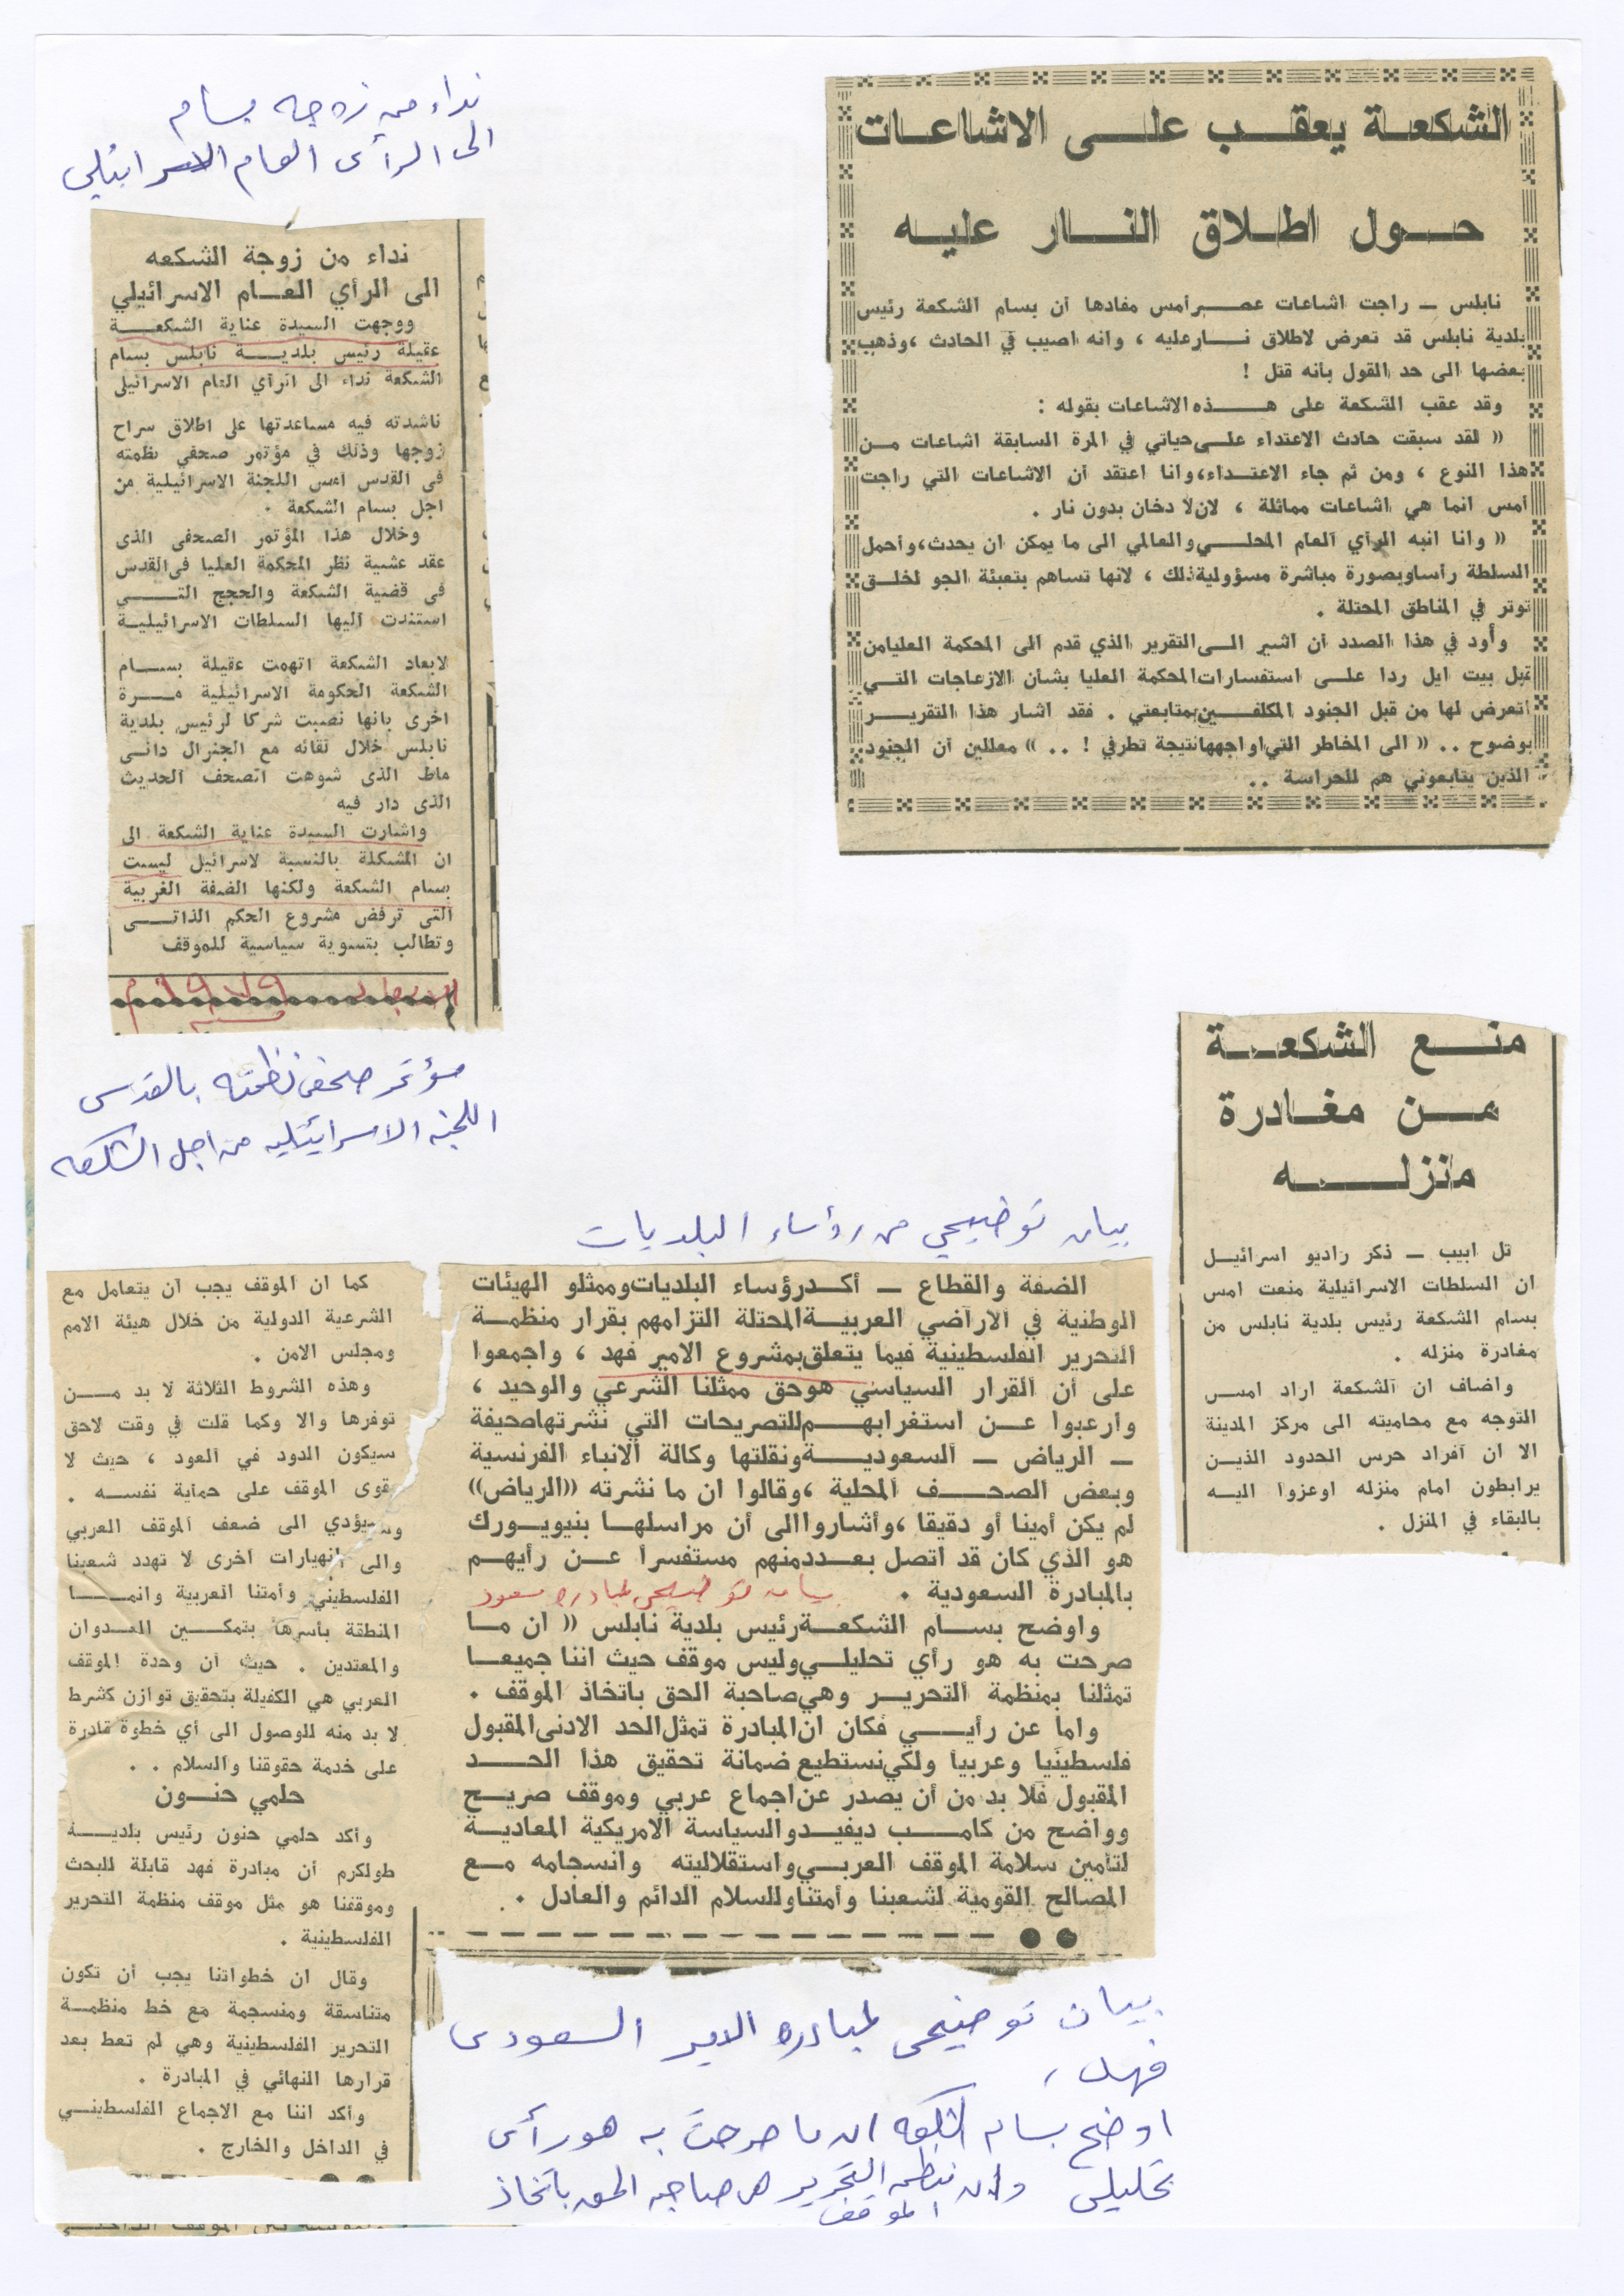 الشكعة يعقب على الاشاعات
حول اطلاق النار عليه
نابلس — راجت اشاعات عصر أمس مفادها أن بسام الشكعة رئيس
بلدية نابلس قد تعرض لاطلاق نار عليه ، وانه اصيب في الحادث ، وذهب
بعضها الى حد القول بأنه قتل !
وقد عقب الشكعة على هذه الاشاعات بقوله :
« لقد سبقت حادث الاعتداء على حياتي في المرة السابقة اشاعات من
هذا النوع ، ومن ثم جاء الاعتداء، وانا اعتقد أن الاشاعات التي راجت
أمس انما هي اشاعات مماثلة ، لان لا دخان بدون نار .
« وانا انبه الرأي العام المحلي والعالمي الى ما يمكن ان يحدث، وأحمل
السلطة رأسا وبصورة مباشرة مسؤولية ذلك ، لانها تساهم بتعبئة الجو لخلق
توتر في المناطق المحتلة .
وأود في هذا الصدد أن اشير الى التقرير الذي قدم الى المحكمة العليا من
قبل بيت ايل ردا على استفسارات المحكمة العليا بشأن الازعاجات التي
اتعرض لها من قبل الجنود المكلفين بمتابعتي . فقد اشار هذا التقرير
بوضوح .. « الى المخاطر التي اواجهها نتيجة تطرفي ! .. » معللين أن الجنود
الذين يتابعوني هم للحراسة ..
نداء من زوجه بسام
الى الرأى العام الاسرائيلي
نداء من زوجة الشكعه
الى الرأي العام الاسرائيلي
ووجهت السيدة عناية الشكعة
عقيلة رئيس بلدية نابلس بسام
الشكعة نداء الى الرأي العام الاسرائيلى
ناشدته فيه مساعدتها على اطلاق سراح
زوجها وذلك في مؤتمر صحفي نظمته
فى القدس امس اللجنة الاسرائيلية من
اجل بسام الشكعة .
وخلال هذا المؤتمر الصحفى الذى
عقد عشية نظر المحكمة العليا فى القدس
فى قضية الشكعة والحجج التي
استندت اليها السلطات الاسرائيلية
لابعاد الشكعة اتهمت عقيلة بسام
الشكعة الحكومة الاسرائيلية مرة
اخرى بانها نصبت شركا لرئيس بلدية
نابلس خلال لقائه مع الجنرال دانى
ماط الذى شوهت الصحف الحديث
الذى دار فيه
واشارت السيدة عناية الشكعة الى
ان المشكلة بالنسبة لاسرائيل ليست
بسام الشكعة ولكنها الضفة الغربية
التى ترفض مشروع الحكم الذاتى
وتطالب بتسوية سياسية للموقف
مؤتمر صحفى نظمته بالقدس
اللجنه الاسرائيليه من اجل الشكعه
منع الشكعة
من مغادرة
منزله
تل ابيب — ذكر راديو اسرائيل
ان السلطات الاسرائيلية منعت امس
بسام الشكعة رئيس بلدية نابلس من
مغادرة منزله .
واضاف ان الشكعة اراد امس
التوجه مع محاميته الى مركز المدينة
الا ان أفراد حرس الحدود الذين
يرابطون امام منزله اوعزوا اليه
بالبقاء في المنزل .
بيان توضيحي من رؤساء البلديات
الضفة والقطاع — أكد رؤساء البلديات وممثلو الهيئات
الوطنية في الاراضي العربية المحتلة التزامهم بقرار منظمة
التحرير الفلسطينية فيما يتعلق بمشروع الامير فهد ، واجمعوا
على أن القرار السياسي هو حق ممثلنا الشرعي والوحيد ،
وأرعبوا عن استغرابهم للتصريحات التي نشرتها صحيفة
— الرياض — السعودية ونقلتها وكالة الانباء الفرنسية
وبعض الصحف المحلية ، وقالوا ان ما نشرته «الرياض»
لم يكن أمينا أو دقيقا ، وأشاروا الى أن مراسلها بنيويورك
هو الذي كان قد اتصل بعدد منهم مستفسرا عن رأيهم
بالمبادرة السعودية .
بيان توضيحي لمبادره سعود
واوضح بسام الشكعة رئيس بلدية نابلس « ان ما
صرحت به هو رأي تحليلي وليس موقف حيث اننا جميعا
تمثلنا بمنظمة التحرير وهي صاحبة الحق باتخاذ الموقف .
واما عن رأيي فكان ان المبادرة تمثل الحد الادنى المقبول
فلسطينيا وعربيا ولكي نستطيع ضمانة تحقيق هذا الحد
المقبول فلا بد من أن يصدر عن اجماع عربي وموقف صريح
وواضح من كامب ديفيد والسياسة الامريكية المعادية
لتأمين سلامة الموقف العربي واستقلاليته وانسجامه مع
المصالح القومية لشعبنا وأمتنا وللسلام الدائم والعادل .
كما ان الموقف يجب أن يتعامل مع
الشرعية الدولية من خلال هيئة الامم
ومجلس الامن .
وهذه الشروط الثلاثة لا بد من
توفرها والا وكما قلت في وقت لاحق
سيكون الدود في العود ، حيث لا
يقوى الموقف على حماية نفسه .
وسيؤدي الى ضعف الموقف العربي
والى انهيارات اخرى لا تهدد شعبنا
الفلسطيني وأمتنا العربية وانما
المنطقة بأسرها بتمكين العدوان
والمعتدين . حيث أن وحدة الموقف
العربي هي الكفيلة بتحقيق توازن كشرط
لا بد منه للوصول الى أي خطوة قادرة
على خدمة حقوقنا والسلام . .
حلمي حنون
وأكد حلمي حنون رئيس بلدية
طولكرم أن مبادرة فهد قابلة للبحث
وموقفنا هو مثل موقف منظمة التحرير
الفلسطينية .
وقال ان خطواتنا يجب أن تكون
متناسقة ومنسجمة مع خط منظمة
التحرير الفلسطينية وهي لم تعط بعد
قرارها النهائي في المبادرة .
وأكد اننا مع الاجماع الفلسطيني
في الداخل والخارج .
بيان توضيحى لمبادره الامير السعودى
فهد ،
اوضح بسام الشكعه ان ما صرحت به هو رأى
تحليلى وان منظمه التحرير هى صاحبه الحق باتخاذ
الموقف